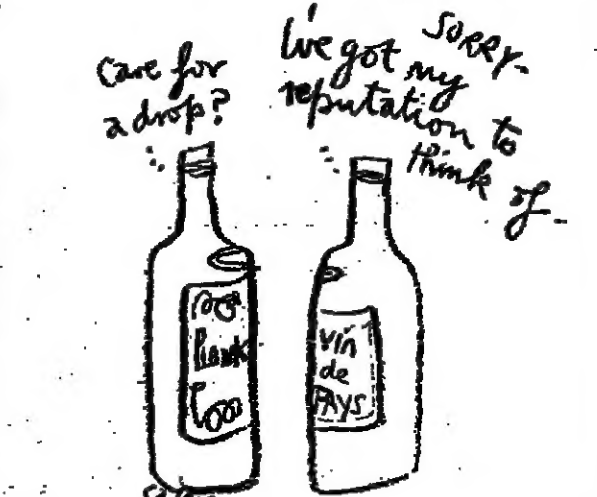 Care for
a drop?
SORRY-
I've got my
reputation to
think of-
Plonk
vin
de
PAYS